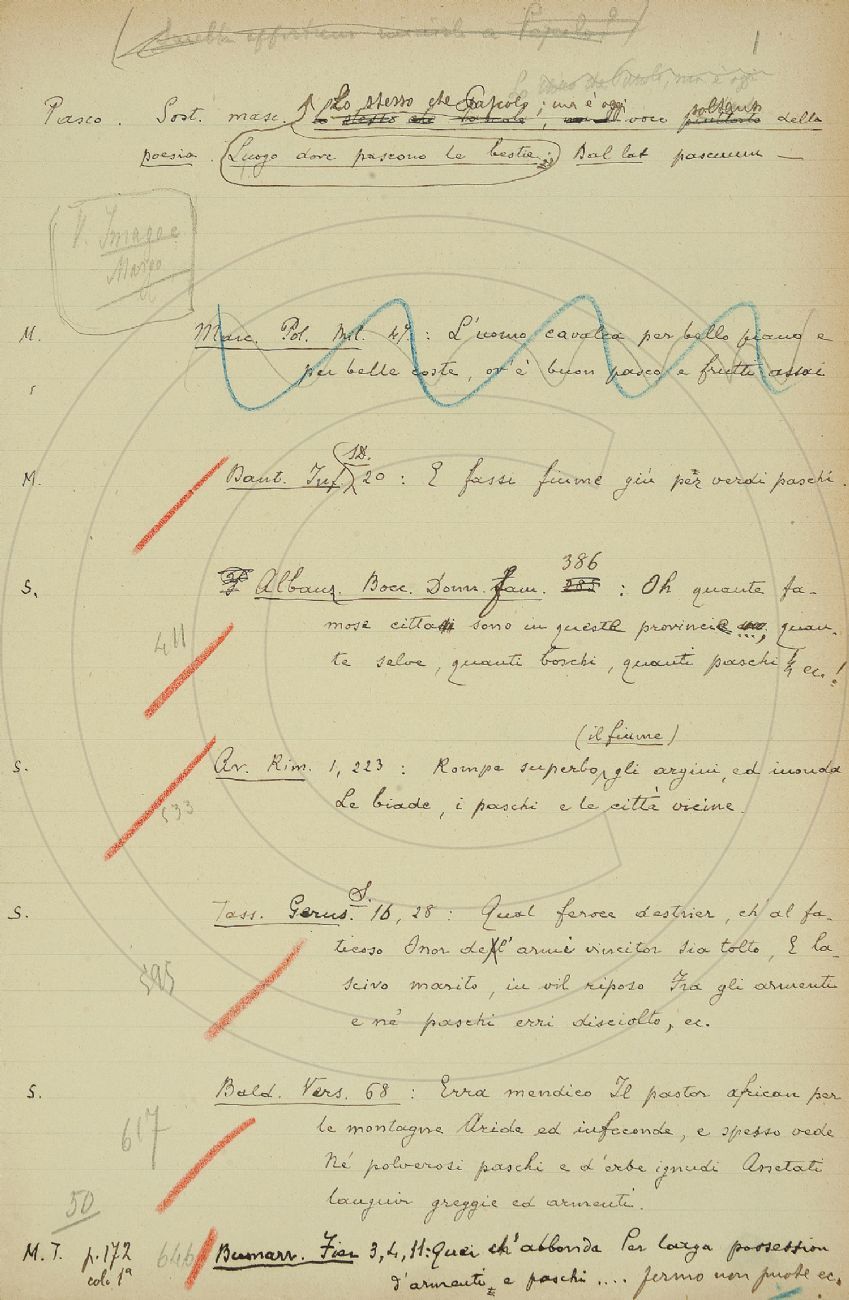 1
Pasco. Sost. masc. Lo stesso che Pascolo; ma è oggi voce soltanto della
poesia. Luogo dove pascono le bestie. Dal lat. pascuum —
V. Imagee
Margo
M. Marc. Pol. Mil. 49: L'uomo cavalca per bello piano e
per belle coste, ov'è buon pasco e frutti assai
M. Dant. Inf. SD. 20: E fassi fiume giù per verdi paschi.
S. Albanz. Bocc. Donn. fam. 386 : Oh quante fa-
mose città sono in queste provincie, quan-
411
te selve, quanti boschi, quanti paschi ec.!
(il fiume)
S. Ar. Rim. 1, 223: Rompe superbo gli argini, ed inonda
533
Le biade, i paschi e le città vicine.
S. Tass. Gerus. S. 16, 28: Qual feroce destrier, ch'al fa-
ticoso Onor dell'armi vincitor sia tolto, E la-
595
scivo marito, in vil riposo Fra gli armenti
e ne' paschi erri disciolto, ec.
S. Bald. Vers. 68: Erra mendico Il pastor african per
617
le montagne Aride ed infeconde, e spesso vede
Ne' polverosi paschi e d'erbe ignudi Assetati
50
languir greggie ed armenti.
M. T. p. 172 646 Buonarr. Fier. 3, 4, 11: Quei ch'abbonda Per larga possession
col. 1ª d'armenti e paschi .... fermo non puote ec.